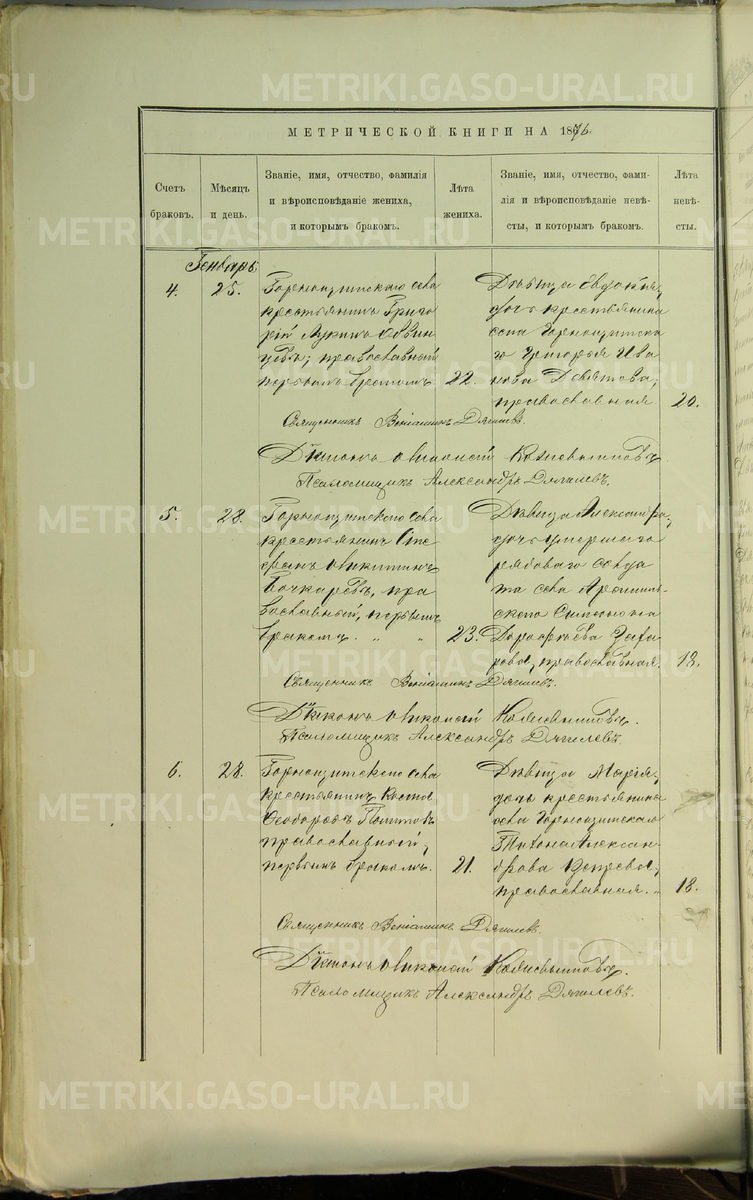 МЕТРИЧЕСКОЙ КНИГИ НА 1876.
Счетъ браковъ.
Мѣсяцъ и день.
Званіе, имя, отчество, фамилія
и вѣроисповѣданіе жениха,
и которымъ бракомъ.
Лѣта жениха.
Званіе, имя, отчество, фами-
лія и вѣроисповѣданіе невѣ-
сты, и которымъ бракомъ.
Лѣта невѣ-
сты.
Генварь
4.
25.
Горнощитскаго села
крестьянинъ Григо
рій Лукинъ
православный
первымъ бракомъ
22.
Дѣвица Евдокія,
дочь крестьянина
села Горнощитска
го Григорья Ива
нова Девятова,
православная
20.
Священникъ Веніаминъ Дягилевъ.
Діаконъ Николай
Псаломщикъ Александръ Дягилевъ.
5.
28.
Горнощитскаго села
крестьянинъ Сте
фанъ Никитинъ
Бочкаревъ, пра
вославный, первымъ
бракомъ. " "
23.
Дѣвица Александра,
дочь умершаго
рядоваго солда
та села Арамиль
скаго Симеона
Дорофѣева Заха
рова, православная.
18.
Священникъ Веніаминъ Дягилевъ.
Діаконъ Николай
Псаломщикъ Александръ Дягилевъ.
6.
28.
Горнощитскаго села
крестьянинъ
Ѳеодоровъ
православный,
первымъ бракомъ.
21.
Дѣвица Марія,
дочь крестьянина
села Горнощитскаго
Тихона Алексан
дрова
православная. "
18.
Священникъ Веніаминъ Дягилевъ.
Діаконъ Николай
Псаломщикъ Александръ Дягилевъ.
METRIKI.GASO-URAL.RU